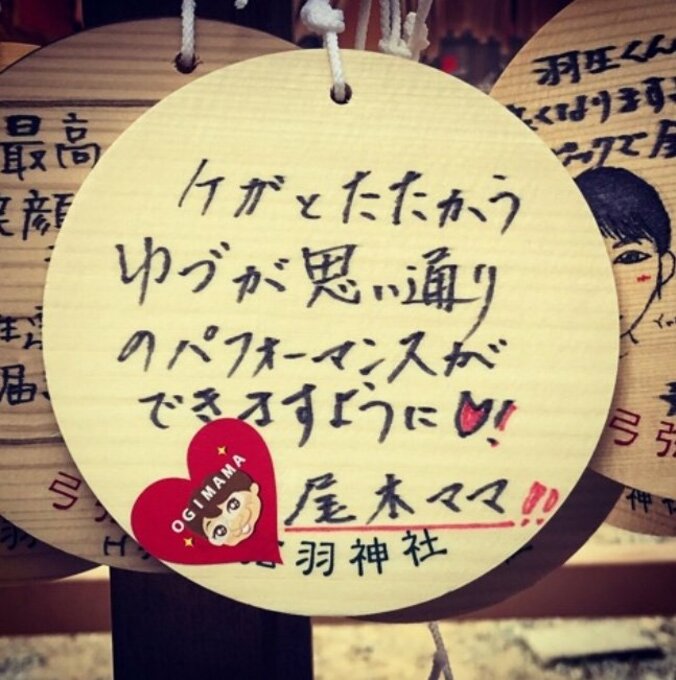 最高
笑顔
届
弓
ケガとたたかう
ゆづが思い通り
のパフォーマンスが
できますように♥!
OGIMAMA
尾木ママ!!
羽神社
羽生くん
くなります
ックで
弓弦
神